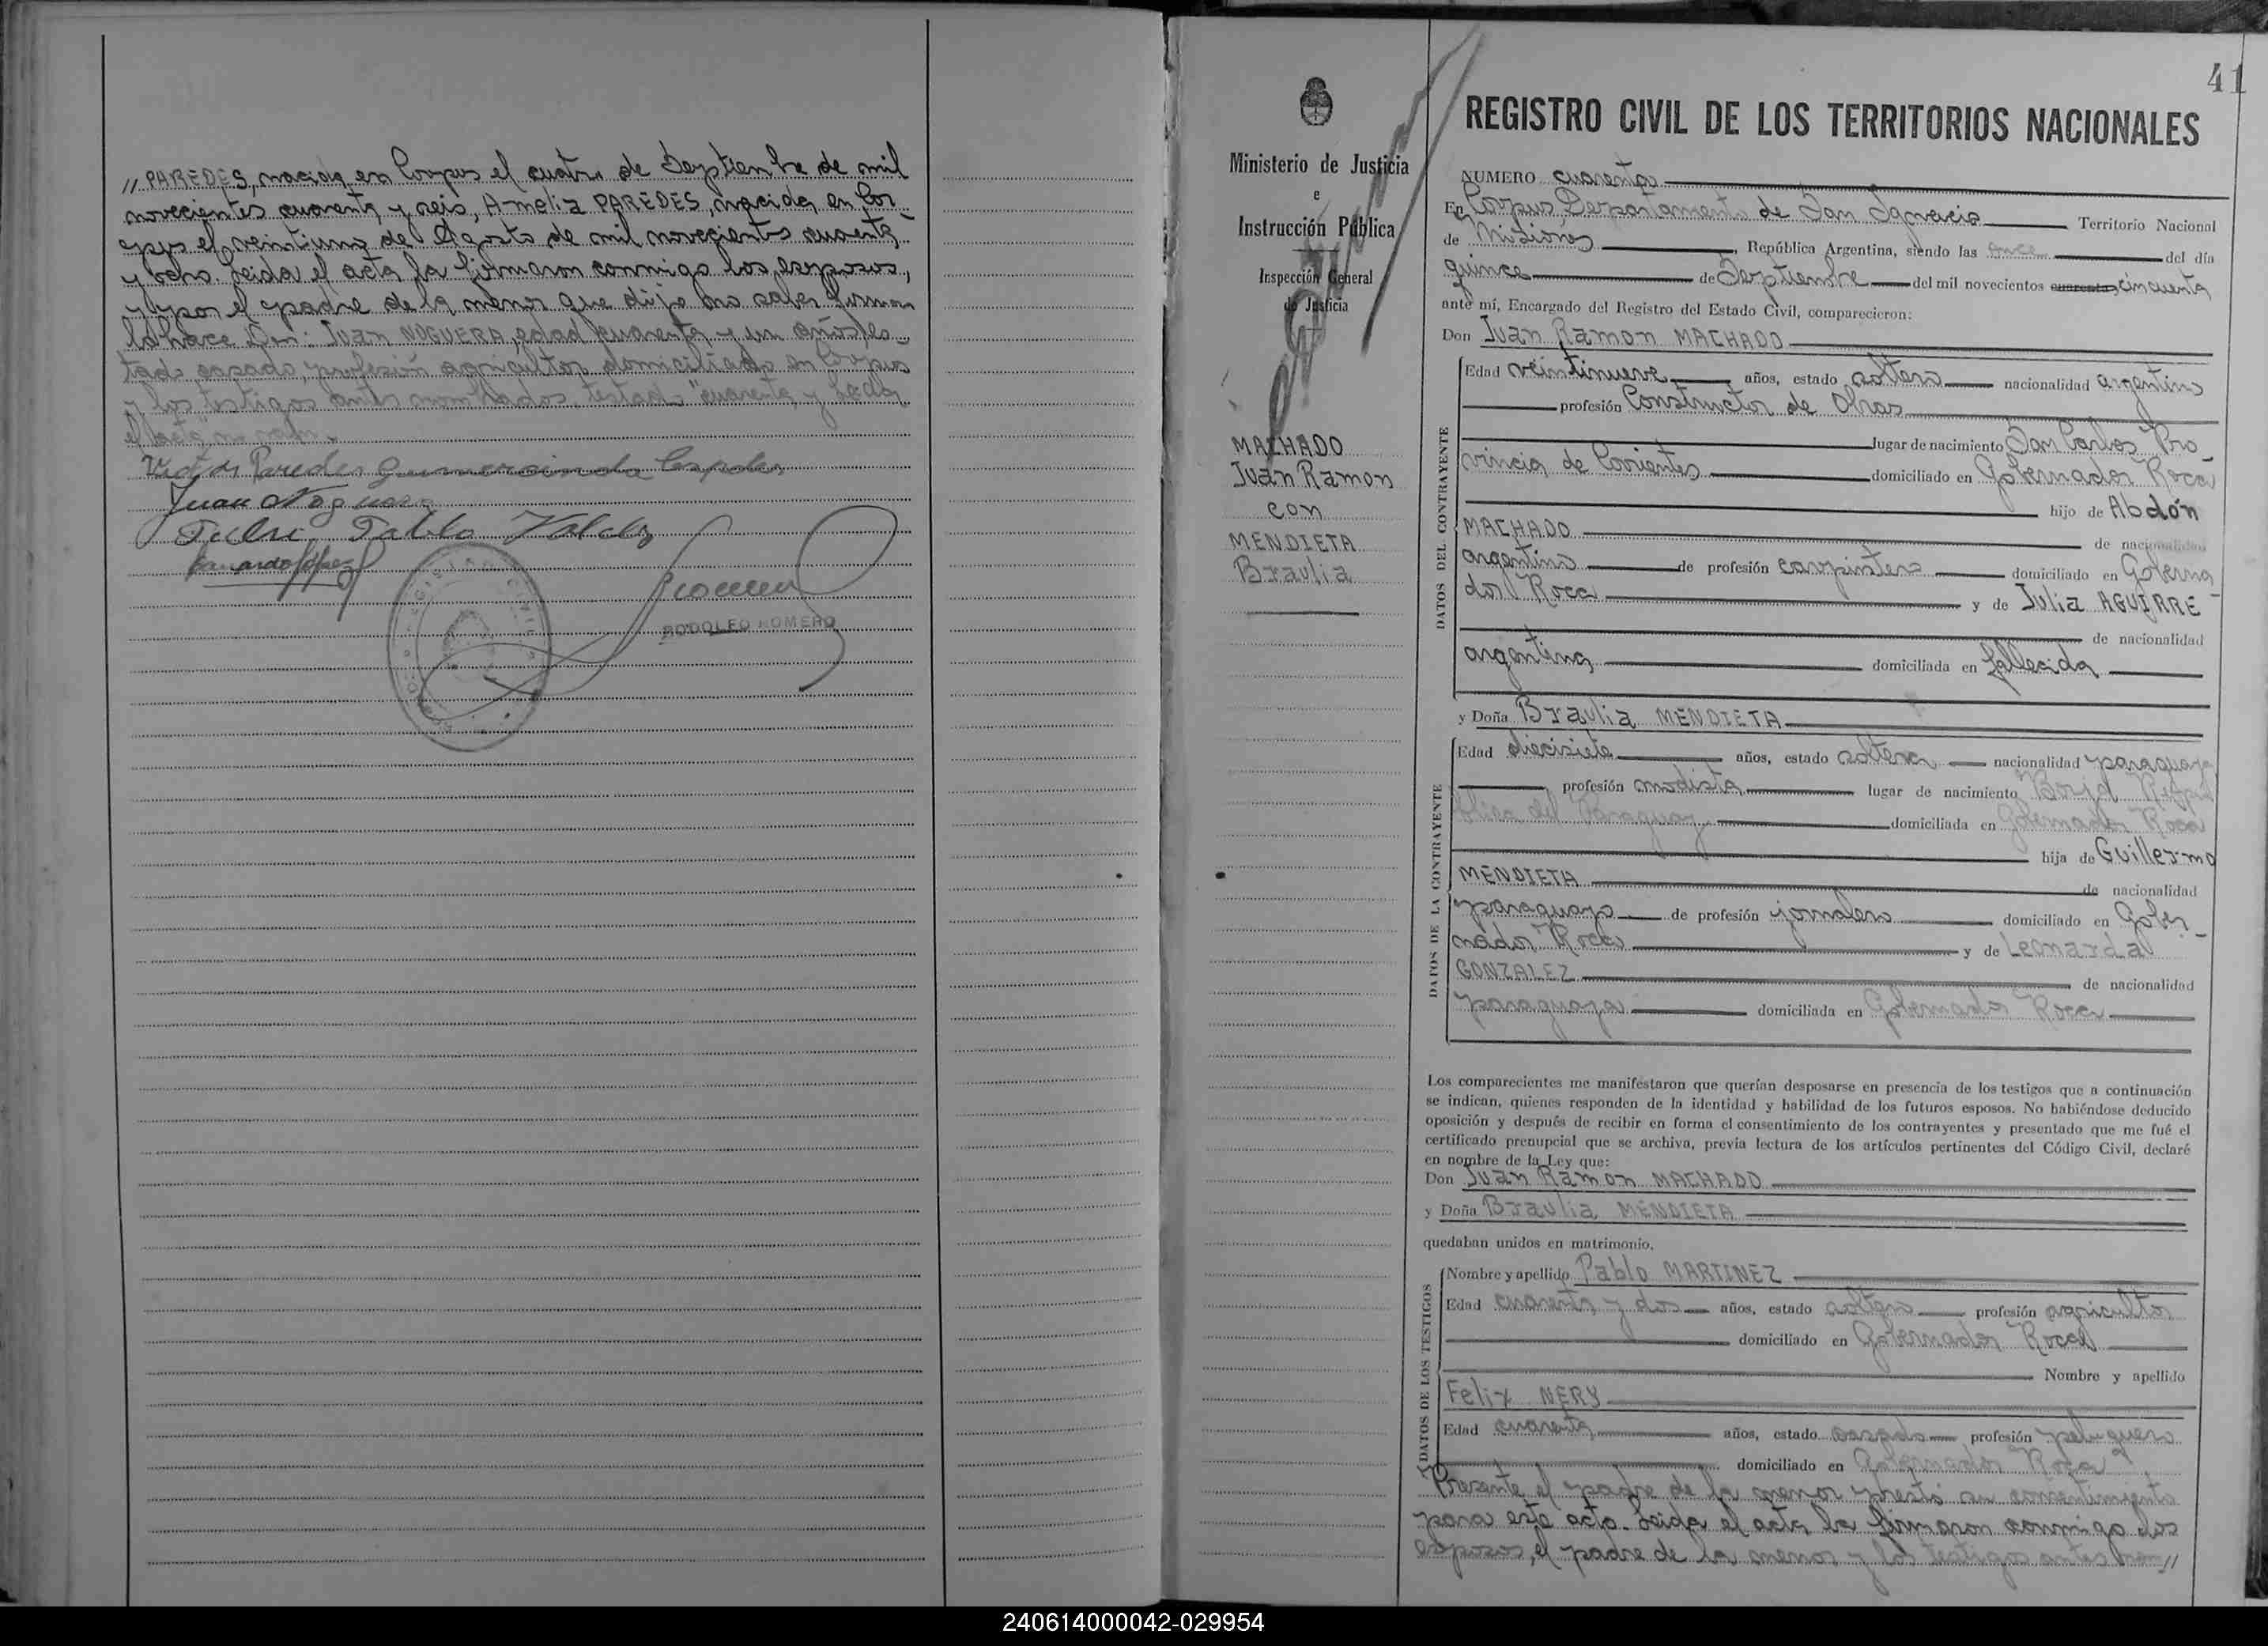 // PAREDES, nacida en Corpus el cuatro de Septiembre de mil
novecientos cuarenta y seis, Amelia PAREDES, nacida en Cor_
pus el veintiuno de Agosto de mil novecientos cuarenta
y ocho. Leida el acta la firmaron conmigo los esposos,
y por el padre de la menor que dijo no saber firmar
lo hace Don: Juan NOGUERA, edad cuarenta y un años, es_
tado casado, profesión agricultor, domiciliado en Corpus
y los testigos antes nombrados, testado "cuarenta y Leida
el acta" no vale.
Victor Paredes Gumersinda Cespedes
Juan Noguera
Pablo Valdez
Eduardo López
RODOLFO ROMERO
41
Ministerio de Justicia
e
Instrucción Pública
Inspección General
de Justicia
MACHADO
Juan Ramon
con
MENDIETA
Braulia
REGISTRO CIVIL DE LOS TERRITORIOS NACIONALES
NUMERO cuarenta
En Corpus Departamento de San Ignacio Territorio Nacional
de Misiones, República Argentina, siendo las once del día
quince de Septiembre del mil novecientos cuarenta, cincuenta
ante mí, Encargado del Registro del Estado Civil, comparecieron:
Don Juan Ramon MACHADO
DATOS DEL CONTRAYENTE
Edad veintinueve años, estado soltero nacionalidad argentino
profesión Constructor de Obras
lugar de nacimiento San Carlos Pro_
vincia de Corrientes domiciliado en Gobernador Roca
hijo de Abdón
MACHADO de nacionalidad
argentino de profesión carpintero domiciliado en Goberna_
dor Roca y de Julia AGUIRRE
de nacionalidad
argentina domiciliada en fallecida
y Doña Braulia MENDIETA
DATOS DE LA CONTRAYENTE
Edad diecisiete años, estado soltera nacionalidad paraguaya
profesión modista lugar de nacimiento Borja Repú
blica del Paraguay domiciliada en Gobernador Roca
hija de Guillermo
MENDIETA de nacionalidad
paraguayo de profesión jornalero domiciliado en Gober_
nador Roca y de Leonarda
GONZALEZ de nacionalidad
paraguaya domiciliada en Gobernador Roca
Los comparecientes me manifestaron que querían desposarse en presencia de los testigos que a continuación
se indican, quienes responden de la identidad y habilidad de los futuros esposos. No habiéndose deducido
oposición y después de recibir en forma el consentimiento de los contrayentes y presentado que me fué el
certificado prenupcial que se archiva, previa lectura de los artículos pertinentes del Código Civil, declaré
en nombre de la Ley que:
Don Juan Ramon MACHADO
y Doña Braulia MENDIETA
quedaban unidos en matrimonio.
DATOS DE LOS TESTIGOS
Nombre y apellido Pablo MARTINEZ
Edad cuarenta y dos años, estado soltero profesión agricultor
domiciliado en Gobernador Roca
Nombre y apellido
Felix NERY
Edad cuarenta años, estado casado profesión peluquero
domiciliado en Gobernador Roca
Presente el padre de la menor prestó su consentimiento
para este acto. Leida el acta la firmaron conmigo los
esposos, el padre de la menor y los testigos antes nom_ //
240614000042-029954